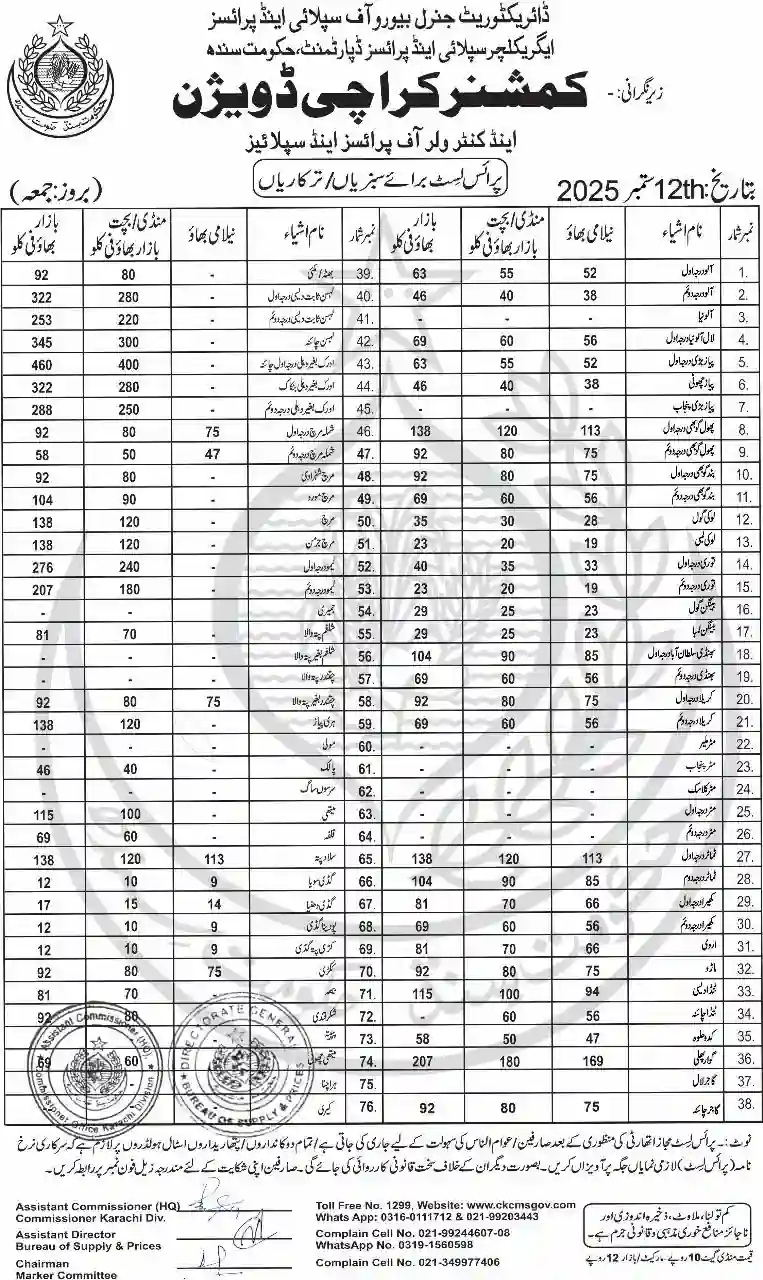 ڈائریکٹوریٹ جنرل بیورو آف سپلائی اینڈ پرائسز
ایگریکلچر سپلائی اینڈ پرائسز ڈپارٹمنٹ، حکومت سندھ
زیر نگرانی:-
کمشنر کراچی ڈویژن
اینڈ کنٹرولر آف پرائسز اینڈ سپلائیز
بتاریخ: 12th ستمبر 2025
پرائس لسٹ برائے سبزیاں/ترکاریاں
(بروز: جمعہ)
نمبر شمار نام اشیاء نیلامی بھاؤ منڈی/بچت بازار بھاؤ فی کلو بازار بھاؤ فی کلو نمبر شمار نام اشیاء نیلامی بھاؤ منڈی/بچت بازار بھاؤ فی کلو بازار بھاؤ فی کلو
1. آلو درجہ اول 52 55 63 39. بھٹہ/مکئی - 80 92
2. آلو درجہ دوئم 38 40 46 40. لہسن ثابت دیسی درجہ اول - 280 322
3. آلو نیا - - - 41. لہسن ثابت دیسی درجہ دوئم - 220 253
4. لال آلو نیا درجہ اول 56 60 69 42. لہسن چائنہ - 300 345
5. پیاز بڑی درجہ اول 52 55 63 43. ادرک بغیر دہلی درجہ اول چائنہ - 400 460
6. پیاز چھوٹی 38 40 46 44. ادرک بغیر دہلی بنکاک - 280 322
7. پیاز بڑی پنجاب - - - 45. ادرک بغیر دہلی درجہ دوئم - 250 288
8. پھول گوبھی درجہ اول 113 120 138 46. شملہ مرچ درجہ اول 75 80 92
9. پھول گوبھی درجہ دوئم 75 80 92 47. شملہ مرچ درجہ دوئم 47 50 58
10. بند گوبھی درجہ اول 75 80 92 48. مرچ شہزادی - 80 92
11. بند گوبھی درجہ دوئم 56 60 69 49. مرچ مورد - 90 104
12. لوکی گول 28 30 35 50. مرچ - 120 138
13. لوکی لمبی 19 20 23 51. مرچ جرمن - 120 138
14. توری درجہ اول 33 35 40 52. لیمو درجہ اول - 240 276
15. توری درجہ دوئم 19 20 23 53. لیمو درجہ دوئم - 180 207
16. بینگن گول 23 25 29 54. جمیری - - -
17. بینگن لمبا 23 25 29 55. شلغم پتہ والا - 70 81
18. بھنڈی سلطان آباد درجہ اول 85 90 104 56. شلغم بغیر پتہ والا - - -
19. بھنڈی درجہ دوئم 56 60 69 57. چقندر پتہ والا - - -
20. کریلا درجہ اول 75 80 92 58. چقندر بغیر پتہ والا 75 80 92
21. کریلا درجہ دوئم 56 60 69 59. ہری پیاز - 120 138
22. مٹر ملیر - - - 60. مولی - - -
23. مٹر پنجاب - - - 61. پالک - 40 46
24. مٹر کلاسک - - - 62. سرسوں ساگ - - -
25. مٹر درجہ اول - - - 63. میتھی - 100 115
26. مٹر درجہ دوئم - - - 64. قلفہ - 60 69
27. ٹماٹر درجہ اول 113 120 138 65. سلاد پتہ 113 120 138
28. ٹماٹر درجہ دوم 85 90 104 66. گڈی سویا 9 10 12
29. کھیرا درجہ اول 66 70 81 67. گڈی دھنیا 14 15 17
30. کھیرا درجہ دوئم 56 60 69 68. پودینا گڈی 9 10 12
31. اروی 66 70 81 69. کڑی پتہ گڈی 9 10 12
32. ماڑو 75 80 92 70. ککڑی 75 80 92
33. ٹنڈا دیسی 94 100 115 71. - 70 81
34. ٹنڈا چائنہ 56 60 - 72. شکرقندی 80 92
35. کدو حلوہ 47 50 58 73.
36. گوار پھلی 169 180 207 74. میتھی چھوٹی 60 69
37. گاجر لال 75. ہرا چنا
38. گاجر چائنہ 75 80 92 76. کیری
نوٹ:۔ پرائس لسٹ مجاز اتھارٹی کی منظوری کے بعد صارفین/عوام الناس کی سہولت کے لیے جاری کی جاتی ہے/تمام دوکانداروں/پتھاریداروں اسٹال ہولڈروں پر لازم ہے کہ سرکاری نرخ
نامہ (پرائس لسٹ) لازمی نمایاں جگہ پر آویزاں کریں۔ بصورت دیگر ان کے خلاف سخت قانونی کارروائی کی جائے گی۔ صارفین اپنی شکایت کے لئے مندرجہ زیل فون نمبر پر رابطہ کریں۔
Assistant Commissioner (HQ)
Commissioner Karachi Div.
Assistant Director
Bureau of Supply & Prices
Chairman
Marker Committee
Toll Free No. 1299, Website: www.ckcmsgov.com
Whats App: 0316-0111712 & 021-99203443
Complain Cell No. 021-99244607-08
WhatsApp No. 0319-1560598
Complain Cell No. 021-349977406
کم تولنا، ملاوٹ، ذخیرہ اندوزی اور
ناجائز منافع خوری مذہبی و قانونی جرم ہے۔
قیمت منڈی گیٹ 10 روپے، مارکیٹ/بازار 12 روپے
Assistant Commissioner (HQ)
Commissioner Office Karachi Division
DIRECTORATE GENERAL
BUREAU OF SUPPLY & PRICES